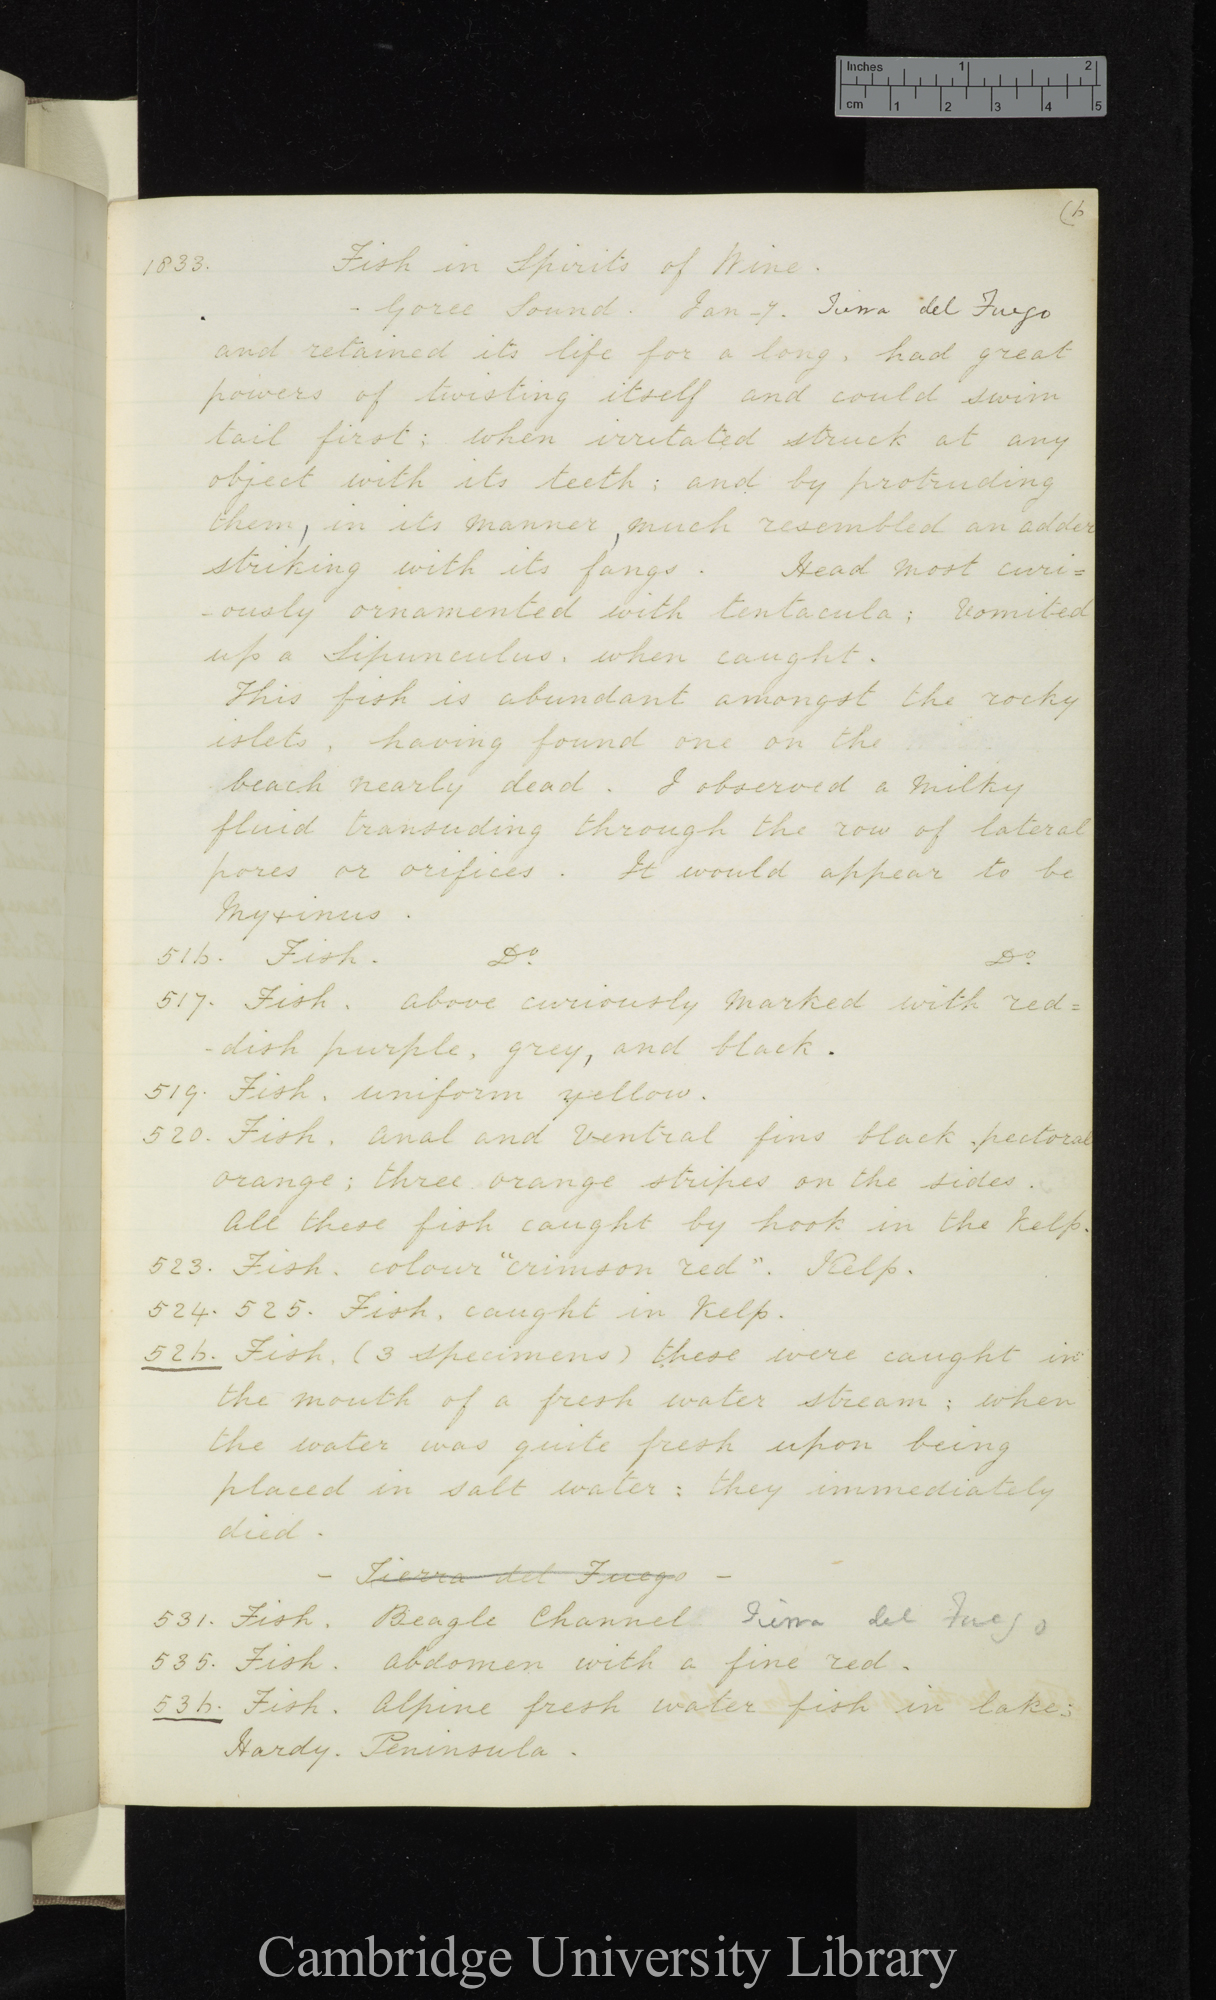 Inches 1 2
cm 1 2 3 4 5
(6
1833. Fish in Spirits of Wine.
- Goree Sound. Jan-7. Tierra del Fuego
and retained its life for a long, had great
powers of twisting itself and could swim
tail first; when irritated struck at any
object with its teeth; and by protruding
them, in its manner, much resembled an adder
striking with its fangs. Head most curi=
-ously ornamented with tentacula; Vomited
up a Sipunculus. when caught.
This fish is abundant amongst the rocky
islets, having found one on the
beach nearly dead. I observed a milky
fluid transuding through the row of lateral
pores or orifices. It would appear to be
Myxinus.
516. Fish. Do. Do.
517. Fish. above curiously marked with red=
-dish purple, grey, and black.
519. Fish. uniform yellow.
520. Fish. anal and ventral fins black. pectoral
orange; three orange stripes on the sides.
All these fish caught by hook in the Kelp.
523. Fish. colour "crimson red". Kelp.
524. 525. Fish. caught in Kelp.
526. Fish. (3 specimens) these were caught in
the mouth of a fresh water stream; when
the water was quite fresh upon being
placed in salt water: they immediately
died.
- Tierra del Fuego -
531. Fish. Beagle Channel Tierra del Fuego
535. Fish. abdomen with a fine red.
536. Fish. Alpine fresh water fish in lake;
Hardy. Peninsula.
Cambridge University Library